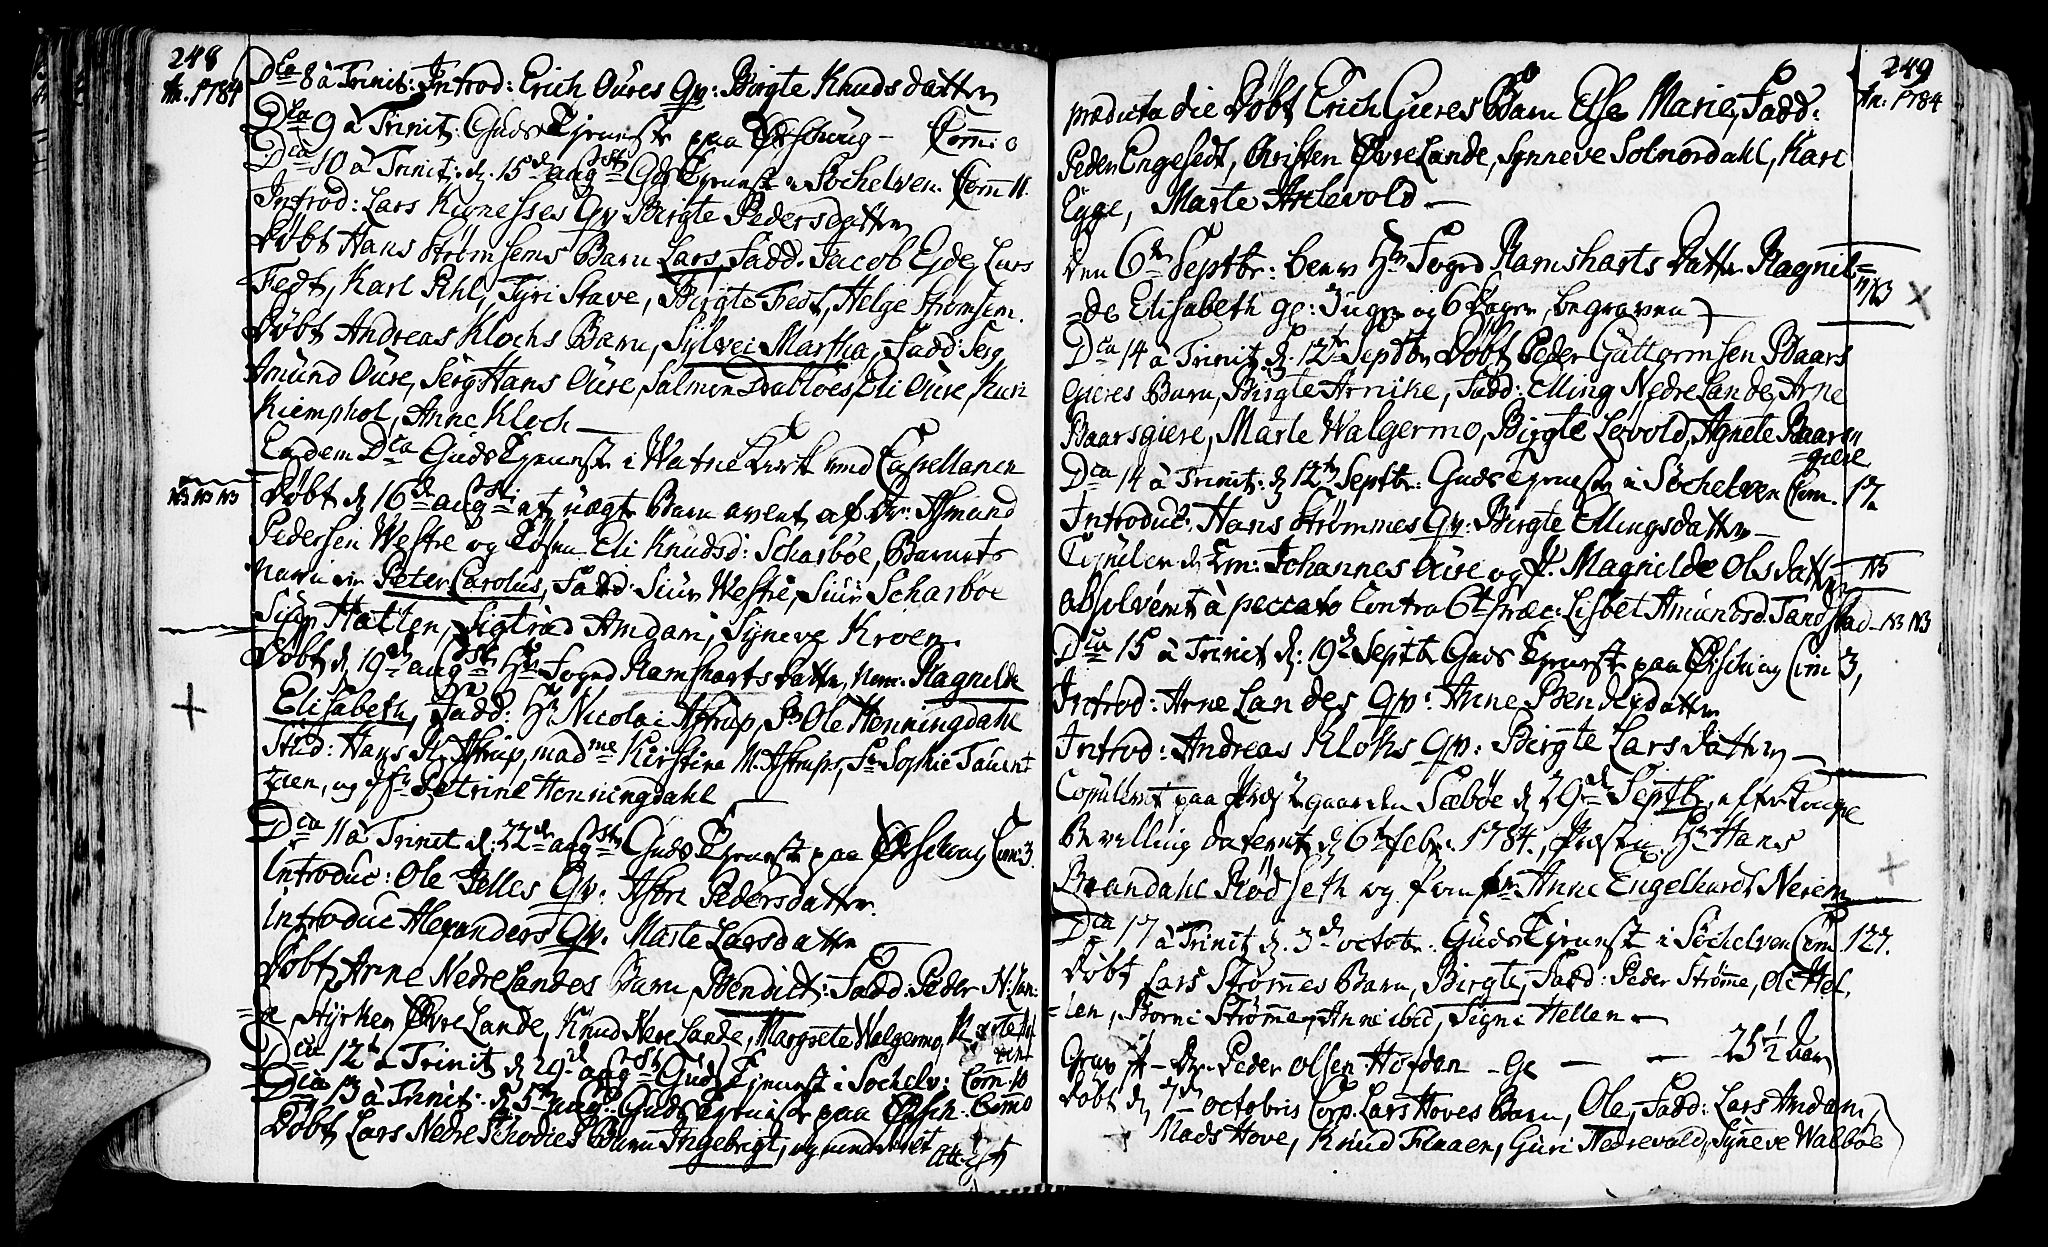 248
An. 1784
Dca 8 à Trinit: Introd: Erich Oures Qv: Birgte Knuds datter
Dca 9 à Trinit: Guds Tjeneste paa Ørschoug - Com̄: 0
Dca 10 à Trinit: d. 15de augsti Gds Tjenest i Sochelven. Com̄ 11.
Introd: Lars Qv Birgte Pedersdatter
Døbt Hans Strømsems Barn Lars, Fadd. Jacob Eyde, Lars
Fedt, Karl Pihl, Tyri Stave, Birgte Fedt, Helge Strømsem.
Døbt Andreas Klochs Barn, Sylvei Martha, Fadd: Serg
Amund Oure, Serg: Hans Oure, Salmon Drabløes, Eli Oure, Kari
Kiemphol, Anne Kloch —
Eadem Dca Guds Tjeneste i Watne Kirk ved Capellanen
NB NB NB Døbt d. 16de augsti et uægte Barn avlet af Dr: Asmund
Pedersen Westre og Tøsen Eli Knudsd: Scharbøe, Barnets
navn er Peter Carolus, Fadd: Siur Westre, Siur Scharbøe
Siur Hatlen, Sigtrød Amdam, Syneve Kroen.
Døbt d. 19de augsti Hr Foged Ramsharts datter, nom. Ragnilde
Elisabeth, Fadd: Hr Nicolai Astrup, Sr Ole Henningdahl
Stud: Hans N. Astrup, madme Kirstine M. Astrups, Fr Sophie Tauent
zien, og Jfr Petrine Henningdahl —
Dca 11 à Trinit d. 22de augsti Guds Tjeneste paa Ørschoug Com: 3.
Introduc: Ole Qv. Pedersdatter.
Introduc Alexanders Qv. Marte Larsdatter
Døbt Arne Nedre Landes Barn, Bendict: Fadd: Peder N: Lan:
=de, Styrker Øvre Lande, Knud Nere Lande, Margrete Walgermo,
Dca 12te à Trinit d. 29de augsti Guds Tjenest i Sochelv: Com. 10
Dca 13 à Trinit: d. 5te Guds Tjeneste paa Ørsch. Com̄ 0
Døbt Lars Nedre Barn Ingebrigt,
249
An: 1784
prædicta die Døbt Erich Gieres Barn Else Marie, Fadd:
Peder Engesedt, Kristen Øvre Lande, Synneve Solnordahl, Karl
Egge, Marte Andevold —
Den 6te Septbr: blev Hr Foged Ramsharts Datter Ragnil=
=de Elisabeth gl: 3 uger og 6 Dager, begraven NB
Dca 14 à Trinit. d. 12te Septbr Døbt Peder Guttormsen Baars
gieres Barn, Birgte Arnike, Fadd: Elling Nedre Lande, Arne
Baarsgiere, Marte Walgermo, Birgte Levold, Agnete Baars
=giere
Dca 14 à Trinit: d. 12te Septbr: Guds Tjeneste i Søchelven Com. 17.
Introduc: Hans Strømmes Qv: Birgte Ellingsdatter —
Copuleret Johannes Oure og P. Magnilde Olsdatter NB
absolveret à peccato Contra 6te præc: Lisbet Amundsd. Tandstad - NB NB
Dca 15 à Trinit d: 19de Septb Guds Tjeneste paa Ørschoug Com 3,
Introd: Arne Landes Qv: Anne Bendicdatter
Introd: Andreas Kloks Qv: Birgte Larsdatter —
Copuleret paa Præstegaarden Sæbøe d. 29de Septbr, efter Konge
Bevilling dateret d. 6te febr: 1784, Præsten Hr Hans
Brandahl Rødseth og Anne Engelhardt Neiem
Dca 17 à Trinit d. 3de octobr: Guds Tjeneste i Søchelven Com 127.
Døbt Lars Strømes Barn, Birgte, Fadd: Peder Strømme, Ole Hel,
=len, Børni Strømme, Anne ibid, Signi Hellen —
Grav P - Peder Olsen Hofden - Gl — — 25½ Aar
Døbt d. 7de octobris Corp. Lars Hoves Barn, Ole, Fadd: Lars Amdam,
Mads Hove, Knud Flaaen, Guri Nedrevold, Synneve Walbøe